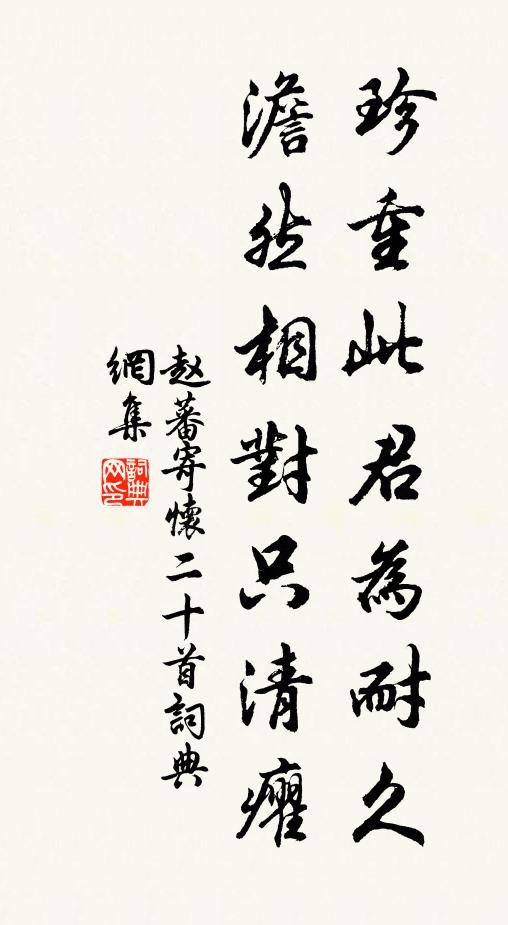 珍重此君為耐久
澹然相對只清癯
赵蕃寄懷二十首詞典
網集
詞典網印